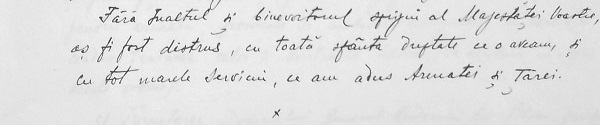 Fără Inaltul și binevoitorul sprijin al Majestăței Voastre,
aș fi fost distrus, cu toată sfânta dreptate ce o aveam, și
cu tot marele serviciu, ce am adus Armatei și Țarei.
x